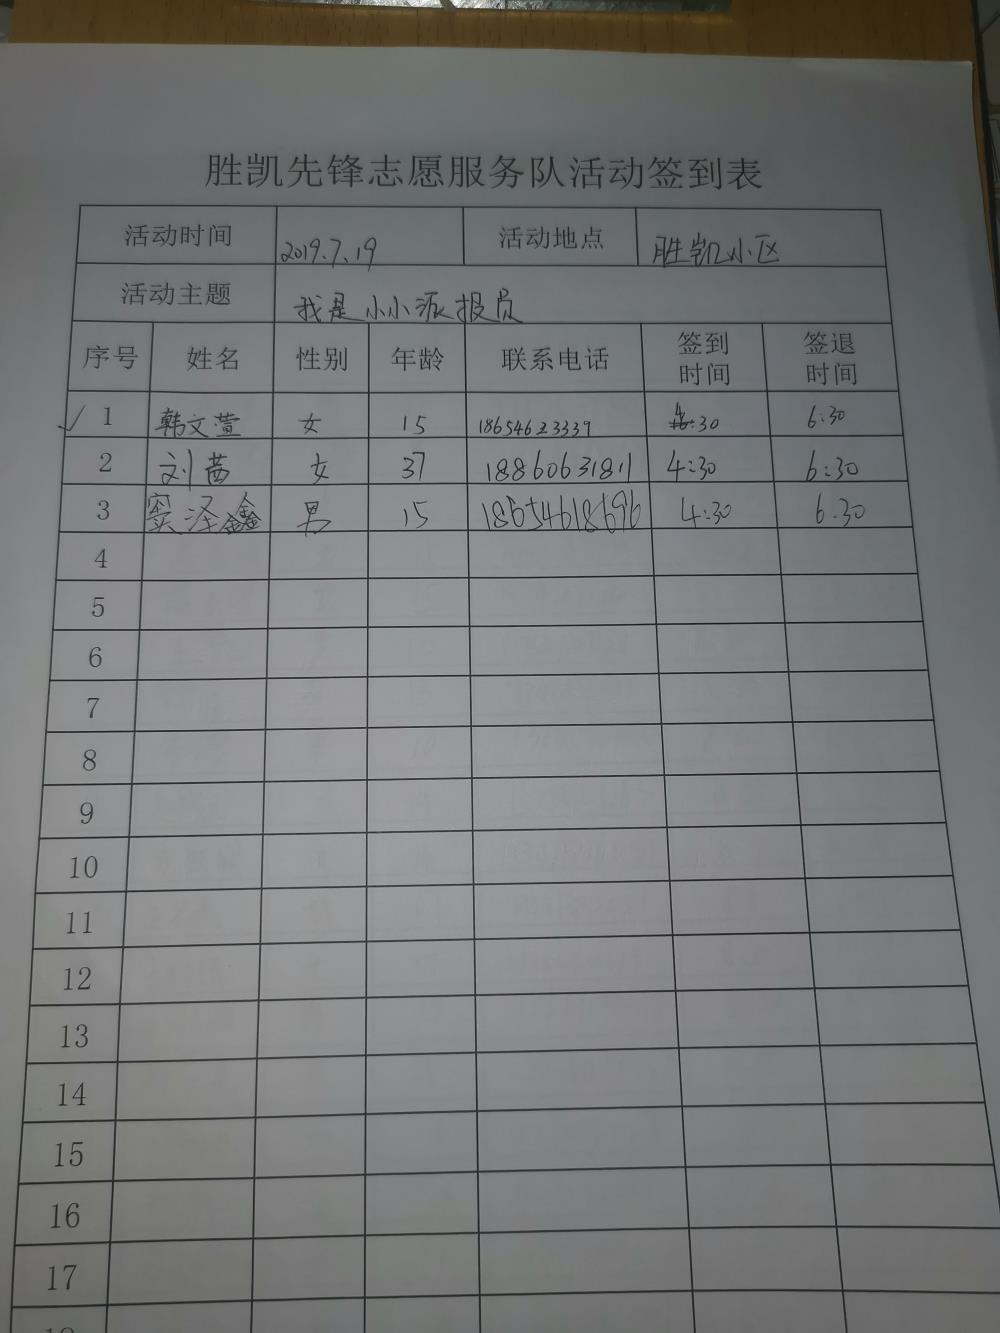 胜凯先锋志愿服务队活动签到表
活动时间 2019.7.19 活动地点 胜凯小区
活动主题 我是小小派报员
序号 姓名 性别 年龄 联系电话 签到时间 签退时间
1 韩文萱 女 15 18654623339 4:30 6:30
2 刘茜 女 37 18860631811 4:30 6:30
3 窦泽鑫 男 15 18654618696 4:30 6.30
4
5
6
7
8
9
10
11
12
13
14
15
16
17